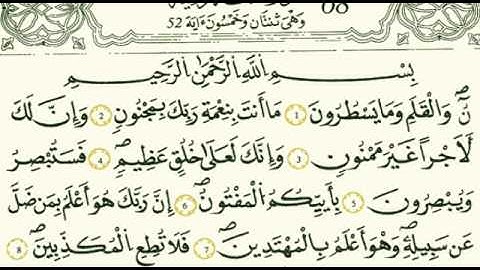 وَهِيَ ثِنْتَانِ وَخَمْسُونَ ءَايَةً 52
بِسْمِ اللَّهِ الرَّحْمَٰنِ الرَّحِيمِ
نٓ وَالْقَلَمِ وَمَا يَسْطُرُونَ 1 مَا أَنتَ بِنِعْمَةِ رَبِّكَ بِمَجْنُونٍ 2 وَإِنَّ لَكَ
لَأَجْرًا غَيْرَ مَمْنُونٍ 3 وَإِنَّكَ لَعَلَىٰ خُلُقٍ عَظِيمٍ 4 فَسَتُبْصِرُ
وَيُبْصِرُونَ 5 بِأَييِّكُمُ الْمَفْتُونُ 6 إِنَّ رَبَّكَ هُوَ أَعْلَمُ بِمَن ضَلَّ
عَن سَبِيلِهِ وَهُوَ أَعْلَمُ بِالْمُهْتَدِينَ 7 فَلَا تُطِعِ الْمُكَذِّبِينَ 8